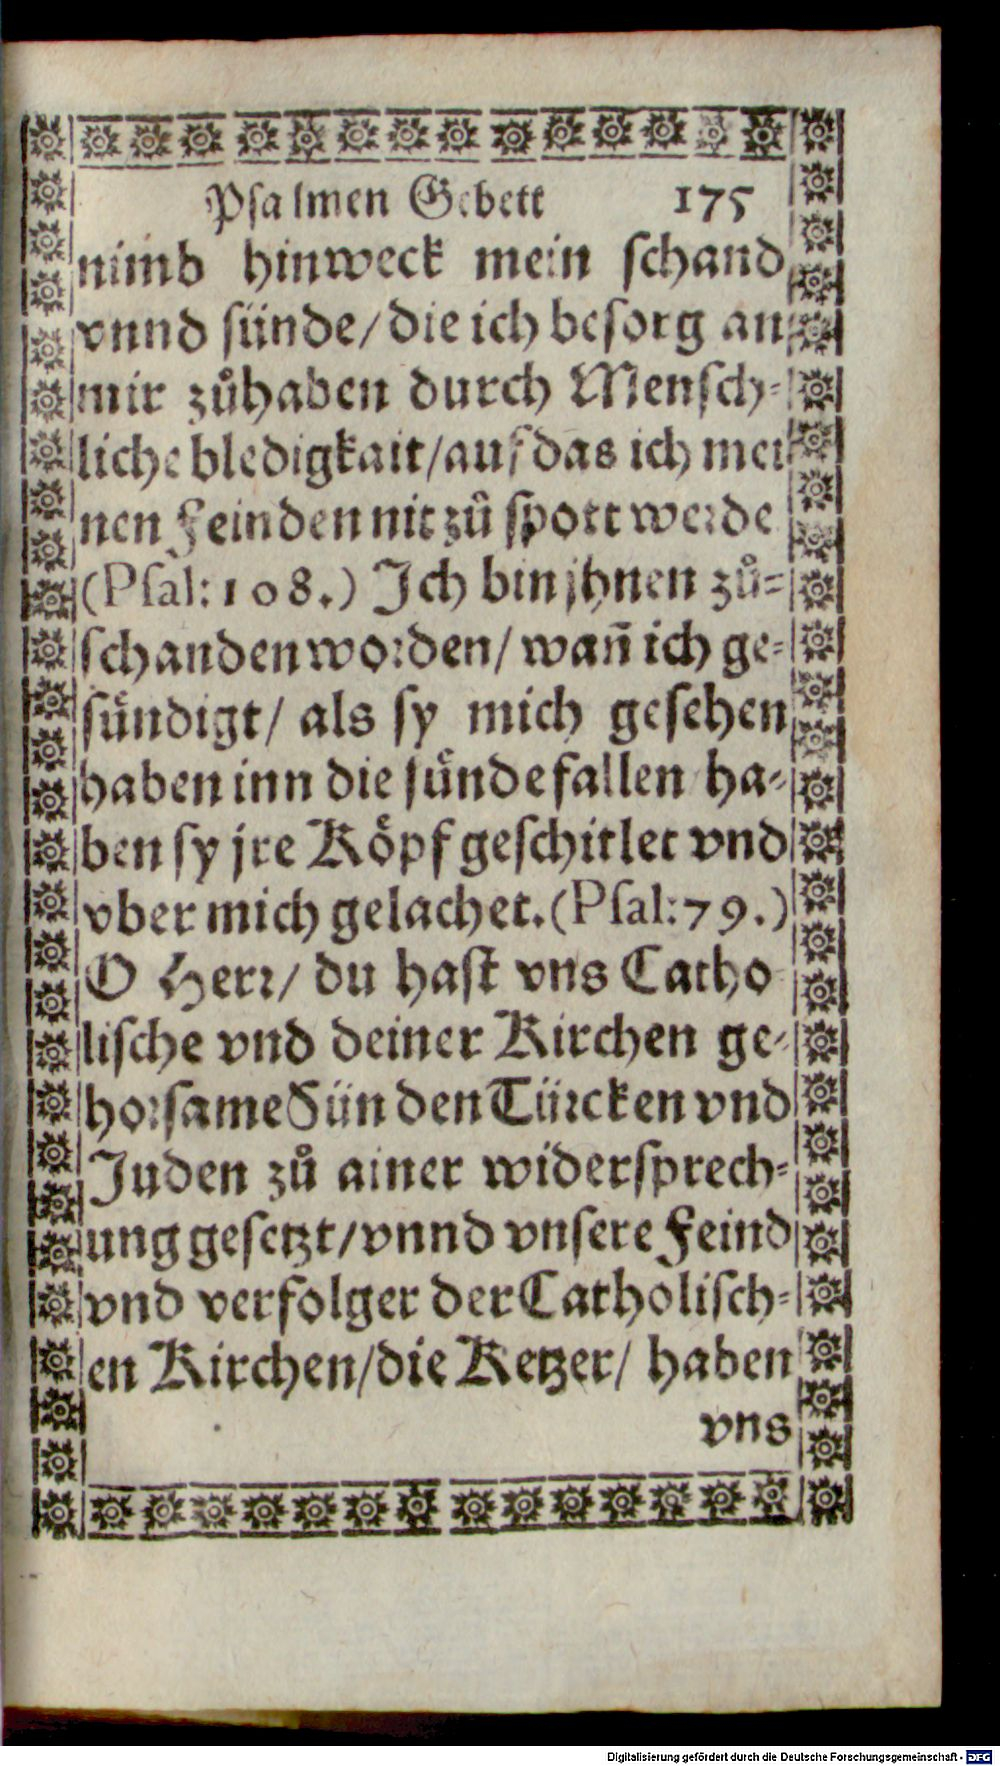 Psalmen Gebett 175
nimb hinweck mein schand
vnnd sünde/ die ich besorg an
mir zůhaben durch Mensch-
liche bledigkait/ auf das ich mei
nen Feinden nit zů spott werde
(Psal: 108.) Ich bin jhnen zů-
schanden worden/ wañ ich ge-
sündigt/ als sy mich gesehen
haben inn die sünde fallen ha-
ben sy jre Köpf geschitlet vnd
vber mich gelachet. (Psal: 79.)
O Herr/ du hast vns Catho
lische vnd deiner Kirchen ge-
horsame Sün den Türcken vnd
Juden zů ainer widersprech-
ung gesetzt/ vnnd vnsere Feind
vnd verfolger der Catholisch-
en Kirchen/ die Ketzer/ haben
vns
Digitalisierung gefördert durch die Deutsche Forschungsgemeinschaft - DFG